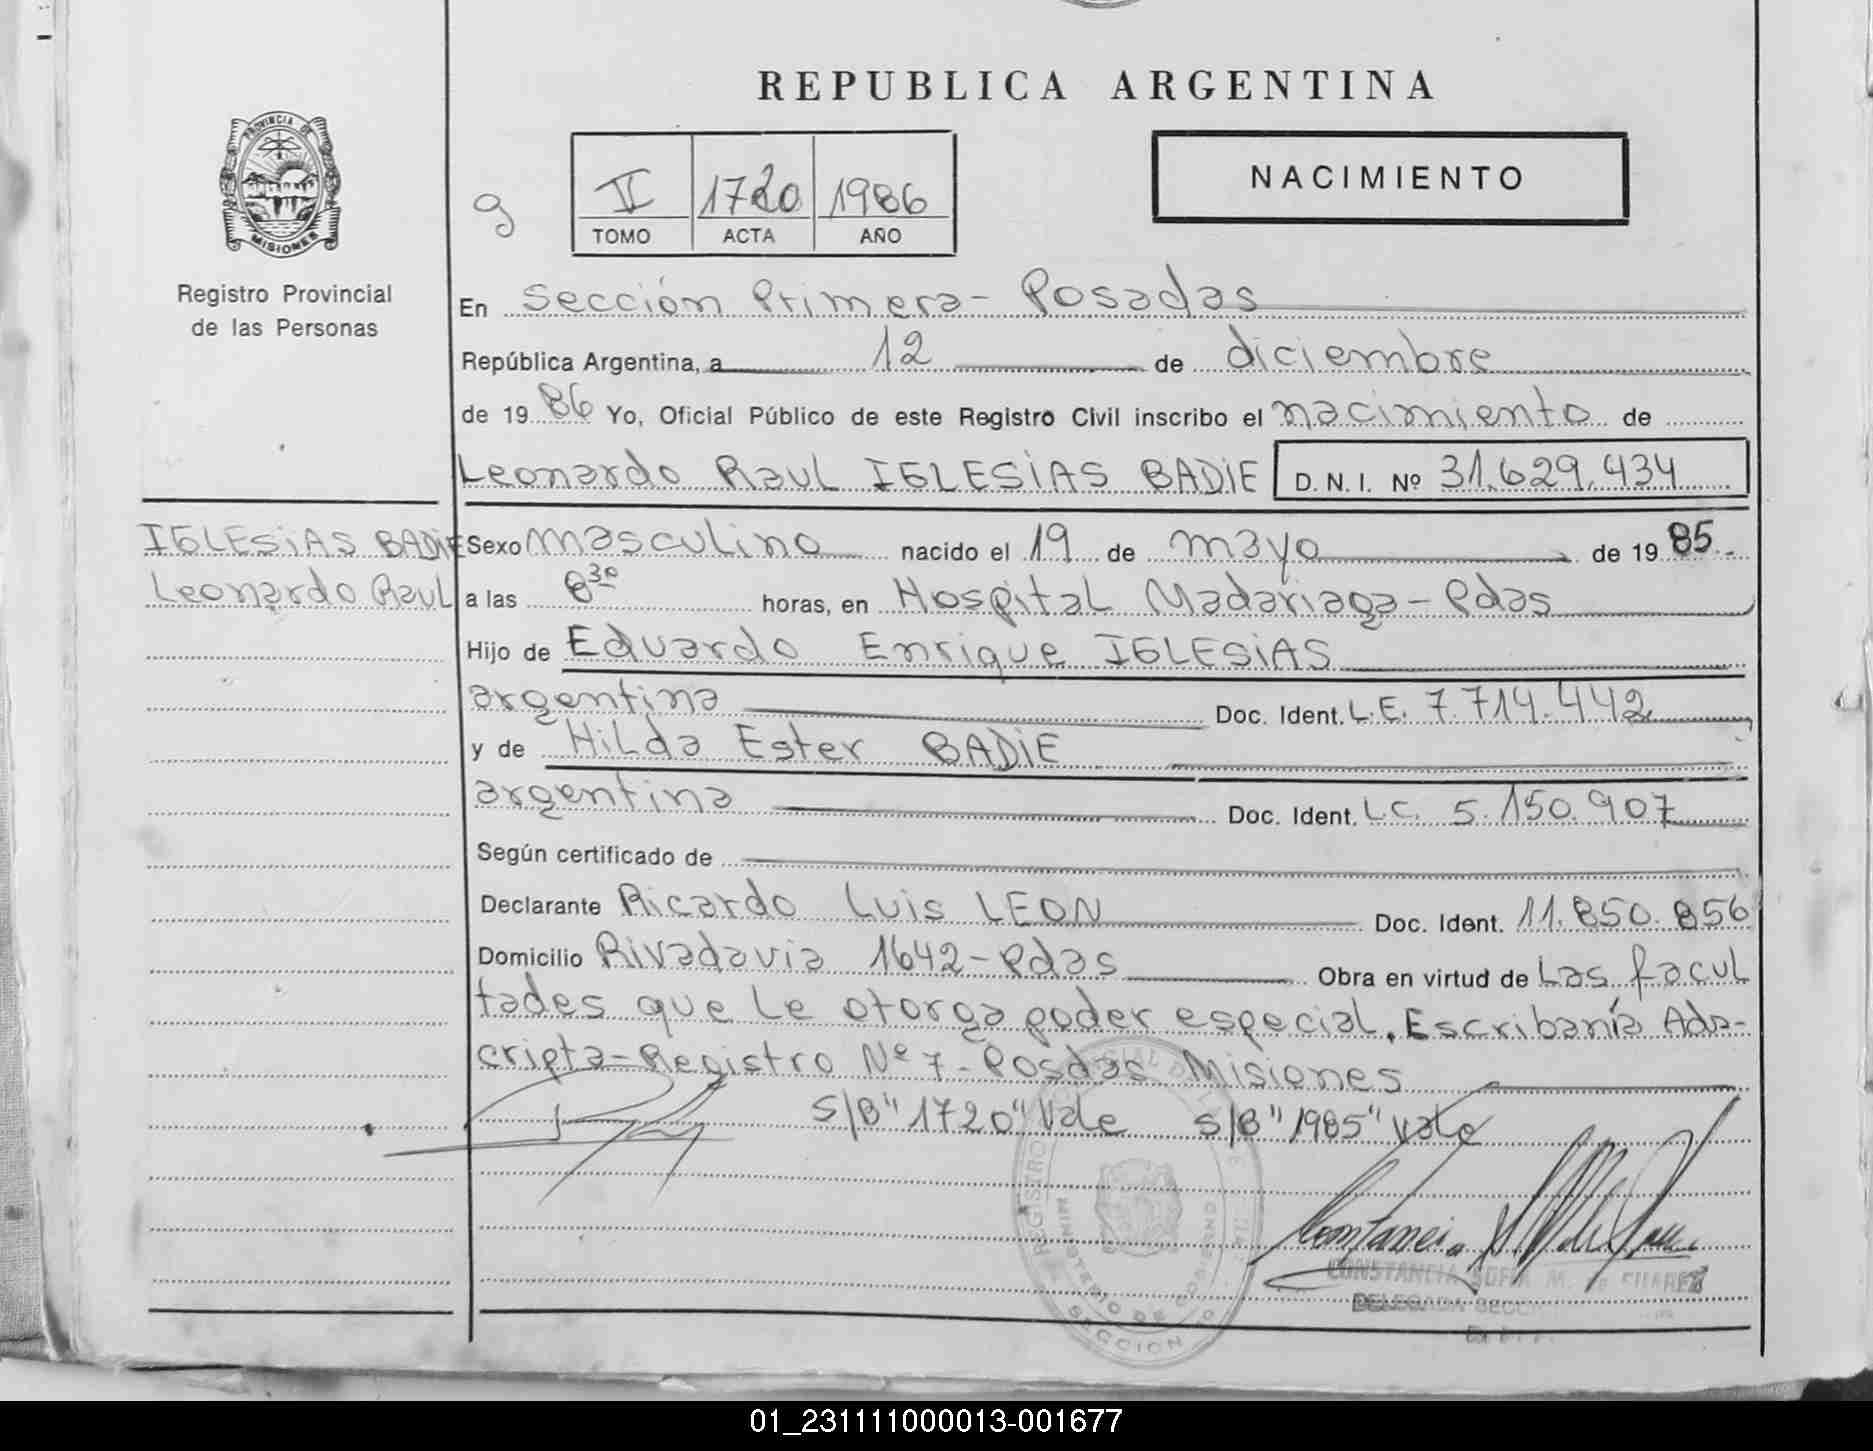 REPUBLICA ARGENTINA
PROVINCIA DE
MISIONES
Registro Provincial
de las Personas
9
II 1720 1986
TOMO ACTA AÑO
NACIMIENTO
En Sección Primera- Posadas
República Argentina, a 12 de diciembre
de 19 86 Yo, Oficial Público de este Registro Civil inscribo el nacimiento de
Leonardo Raul IGLESIAS BADIE D. N. I. Nº 31.629.434
IGLESIAS BADIE
Leonardo Raul
Sexo masculino nacido el 19 de mayo de 19 85.
a las 8 30 horas, en Hospital Madariaga-Pdas
Hijo de Eduardo Enrique IGLESIAS
argentina Doc. Ident. L.E. 7.714.442
y de Hilda Ester BADIE
argentina Doc. Ident. L.C. 5.150.907
Según certificado de
Declarante Ricardo Luis LEON Doc. Ident. 11.850.856
Domicilio Rivadavia 1642-Pdas Obra en virtud de Las facul
tades que Le otorga poder especial. Escribanía Ads-
cripta-Registro Nº 7- Posdas Misiones
S/B "1720" Vale S/B "1985" Vale
REGISTRO
MINISTERIO DE GOBIERNO
SECCION
CONSTANCIA SOFIA M. de SUAREZ
DELEGADA SECC
01_231111000013-001677